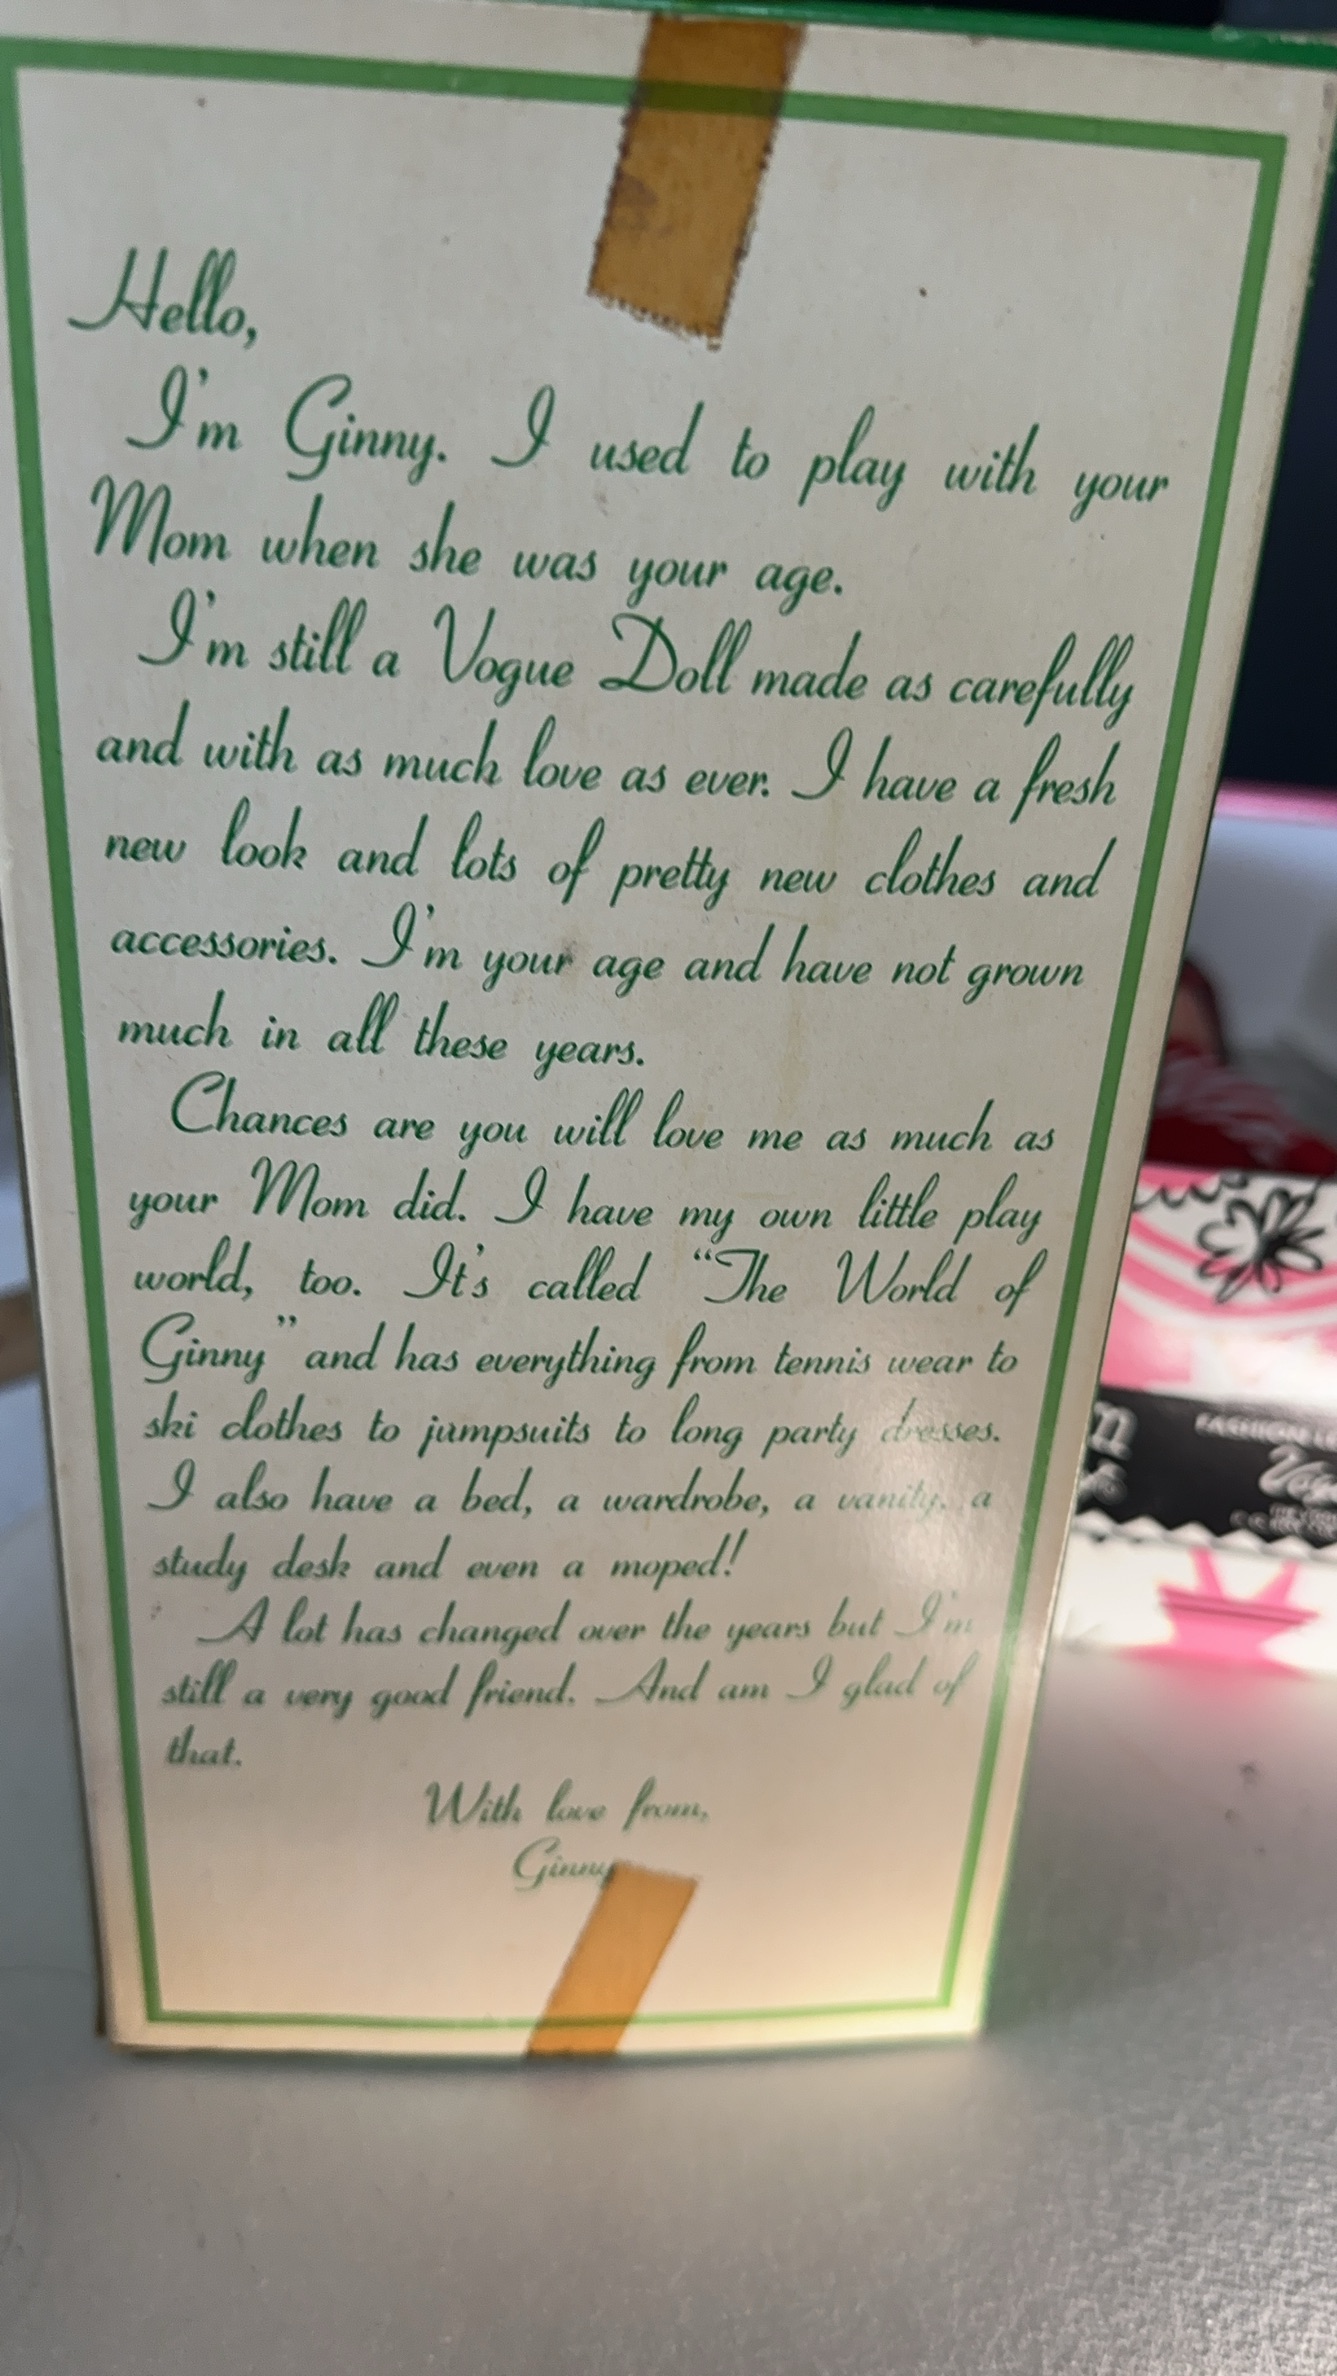 Hello,
I'm Ginny. I used to play with your
Mom when she was your age.
I'm still a Vogue Doll made as carefully
and with as much love as ever. I have a fresh
new look and lots of pretty new clothes and
accessories. I'm your age and have not grown
much in all these years.
Chances are you will love me as much as
your Mom did. I have my own little play
world, too. It's called "The World of
Ginny" and has everything from tennis wear to
ski clothes to jumpsuits to long party dresses.
I also have a bed, a wardrobe, a vanity, a
study desk and even a moped!
A lot has changed over the years but I'm
still a very good friend. And am I glad of
that.
With love from,
Ginny
FASHION